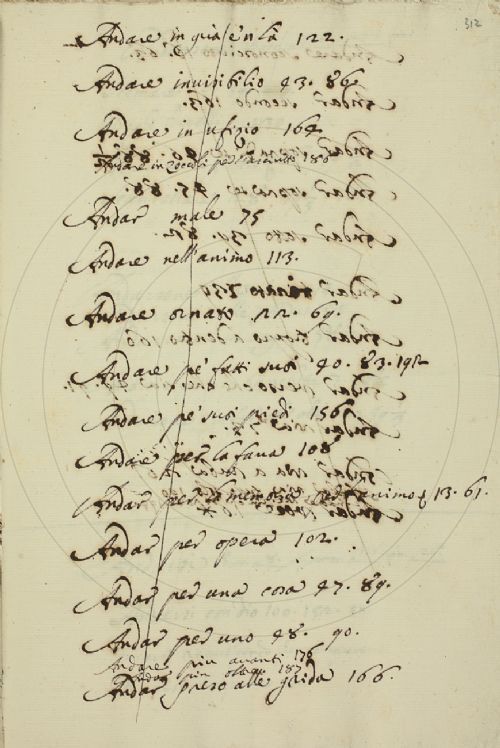 312
Andare in qua e 'n là 122.
Andare invisibilio 43. 86.
Andare in ufizio 164.
Andare in zoccoli per l'asciutto 180
Andar male 75
Andare nell'animo 113.
Andare ornato 22. 69.
Andare pe' fatti suoi 40. 83. 192
Andare pe' suoi piedi 156
Andare per la fava 108
Andar per la memoria per l'animo 13. 61.
Andar per opera 102.
Andar per una cosa 47. 89.
Andar per uno 48. 90.
Andare più avanti 176
Andar più oltre 187
Andar preso alle grida 166.